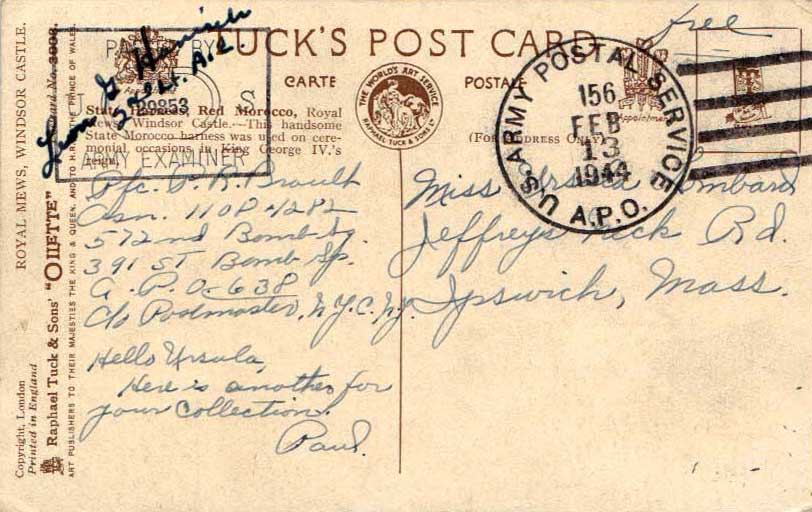 free
TUCK'S POST CARD
CARTE POSTALE
PASSED BY
39853
S
ARMY EXAMINER
2nd Lt. A.C.
THE WORLD'S ART SERVICE
RAPHAEL TUCK & SONS LTD
(FOR ADDRESS ONLY)
Appointment
U.S. ARMY POSTAL SERVICE
156
FEB
13
1944
A.P.O.
State Harness, Red Morocco, Royal
Mews, Windsor Castle.—This handsome
State Morocco harness was used on cere-
monial occasions in King George IV.'s
reign.
Pfc. P. R. Brault
Asn. 11084282
572nd Bomb Sq.
391ST Bomb Gp.
A.P.O. 638
C/o Postmaster, N.Y.C. N.Y.
Hello Ursula,
Here is another for
your Collection.
Paul.
Miss Ursula Lombard
Jeffreys Neck Rd.
Ipswich, Mass.
ROYAL MEWS, WINDSOR CASTLE.
Raphael Tuck & Sons' "OILETTE"
ART PUBLISHERS TO THEIR MAJESTIES THE KING & QUEEN, AND TO H.R.H. THE PRINCE OF WALES.
Copyright, London
Printed in England